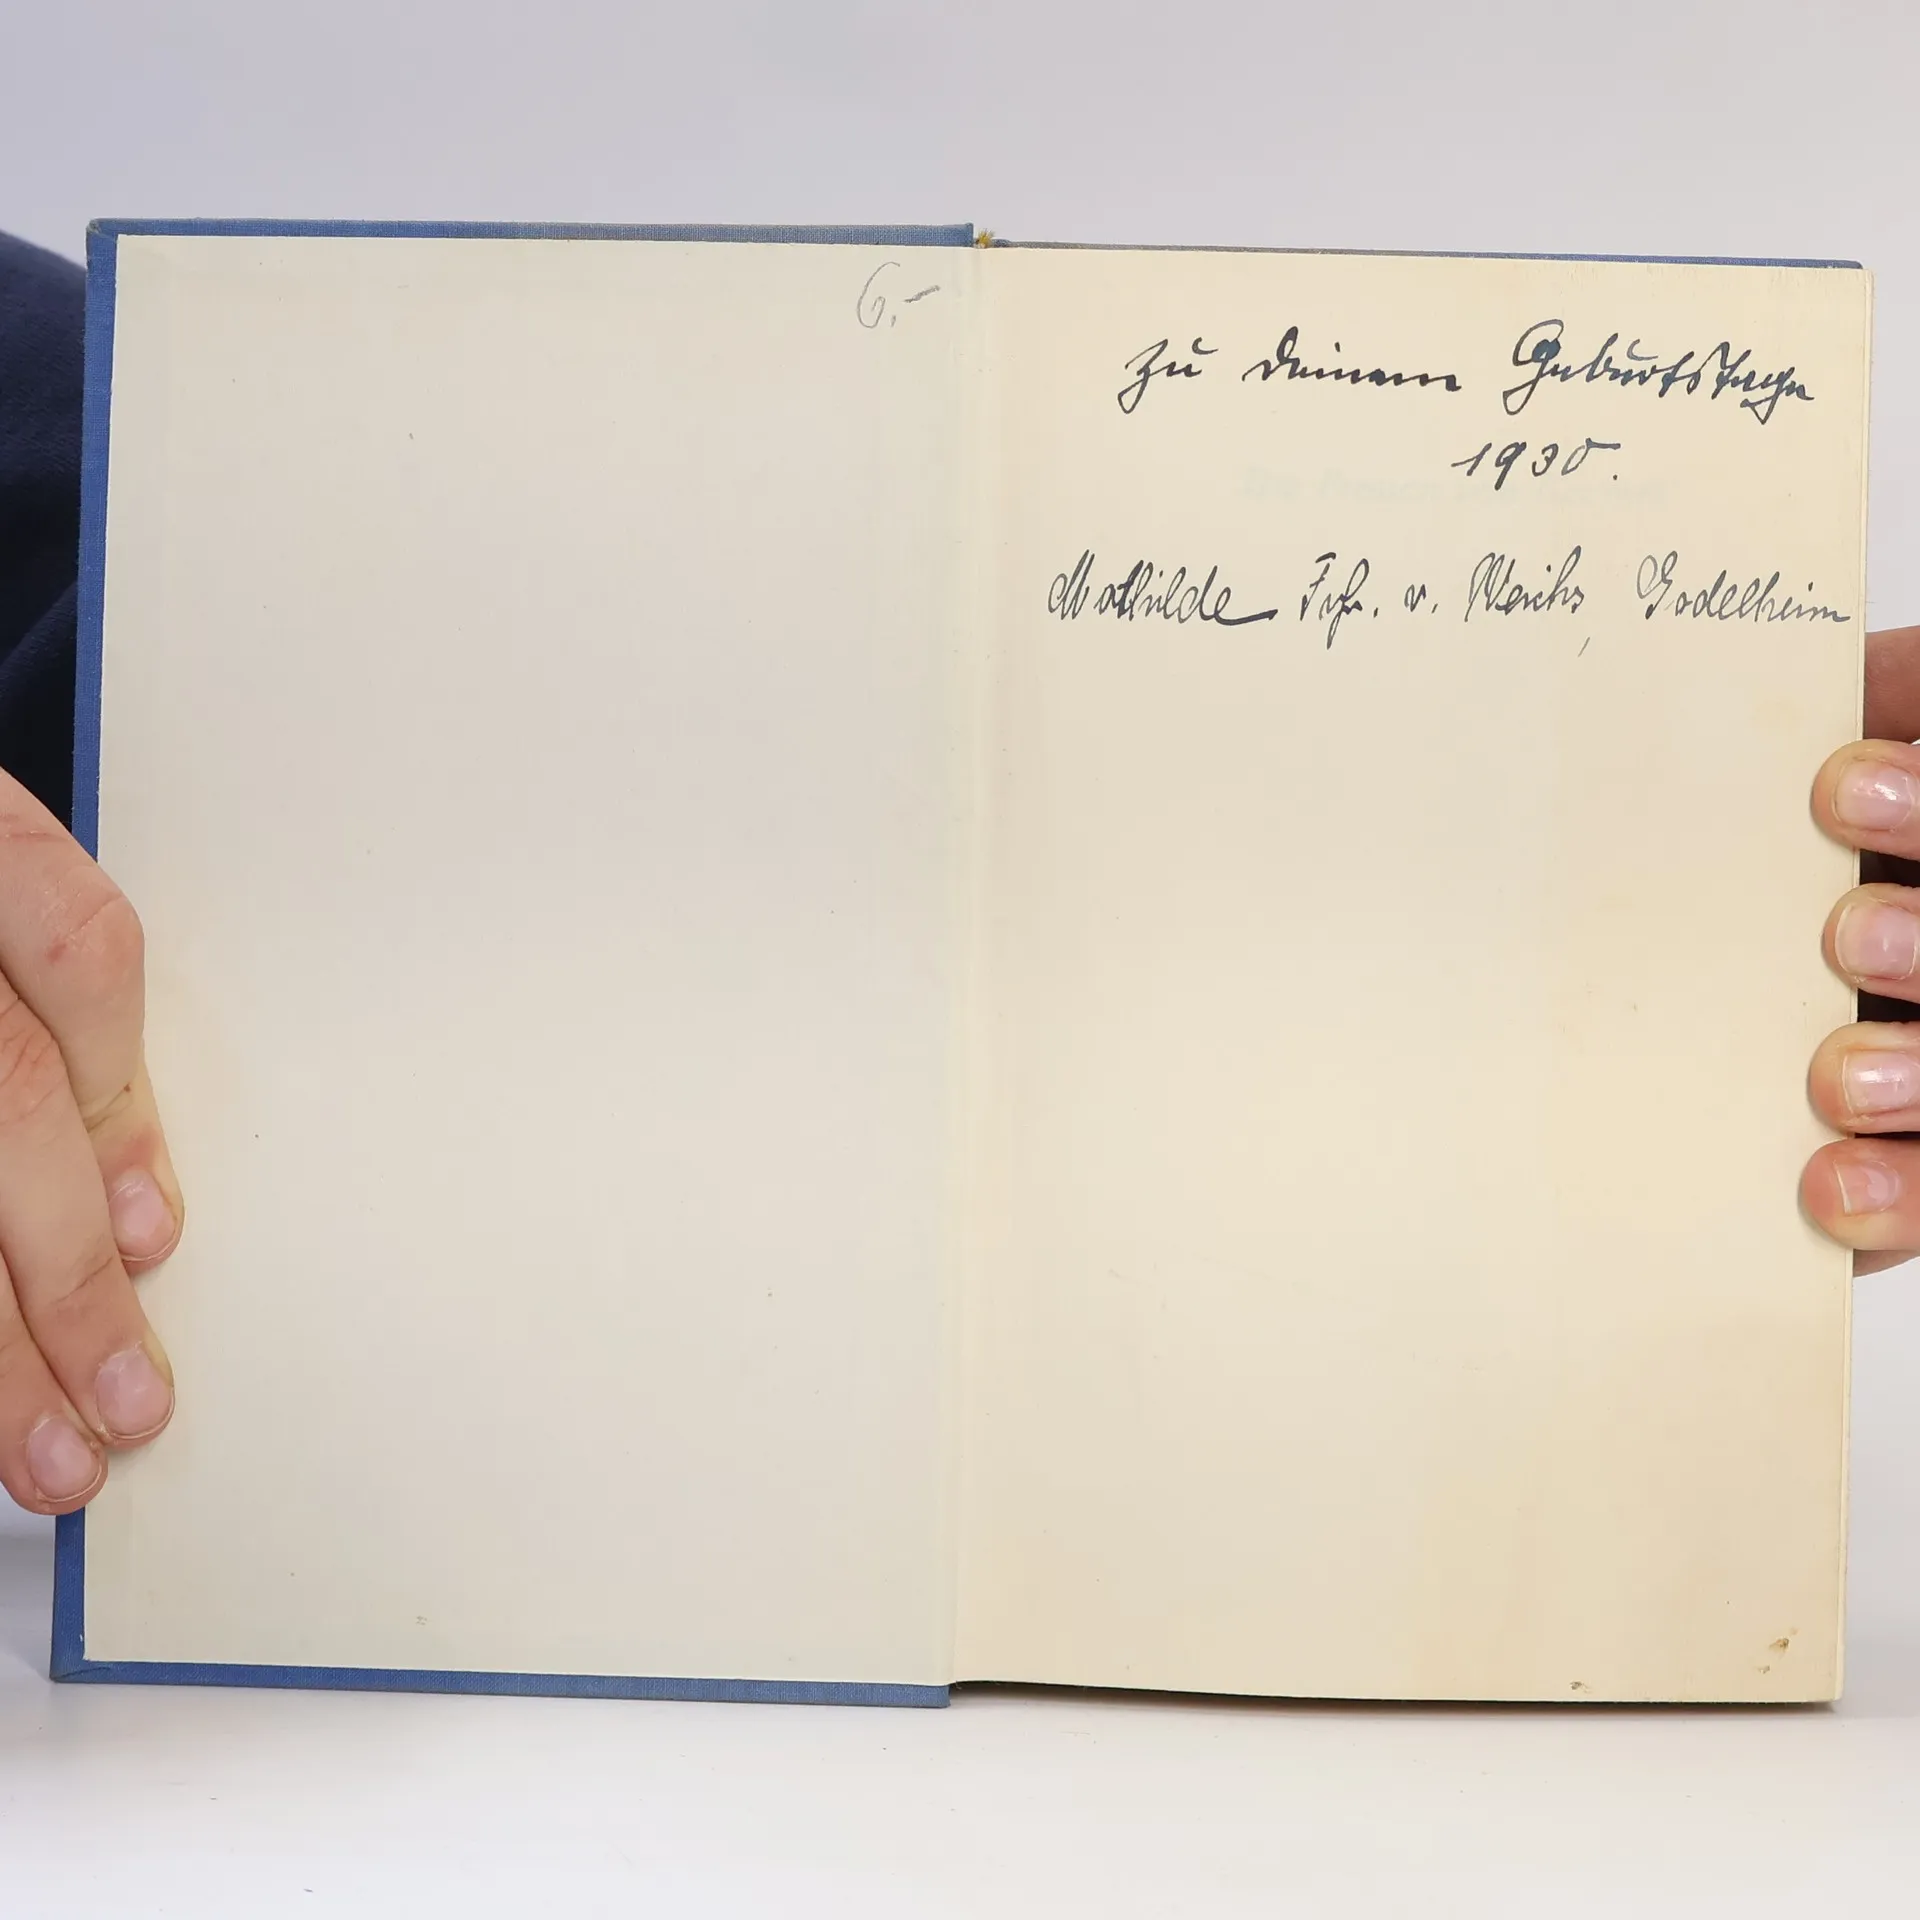 6.-
Zu deinem Geburtstage
1930.
Mathilde Frh. v. Weichs, Godelheim